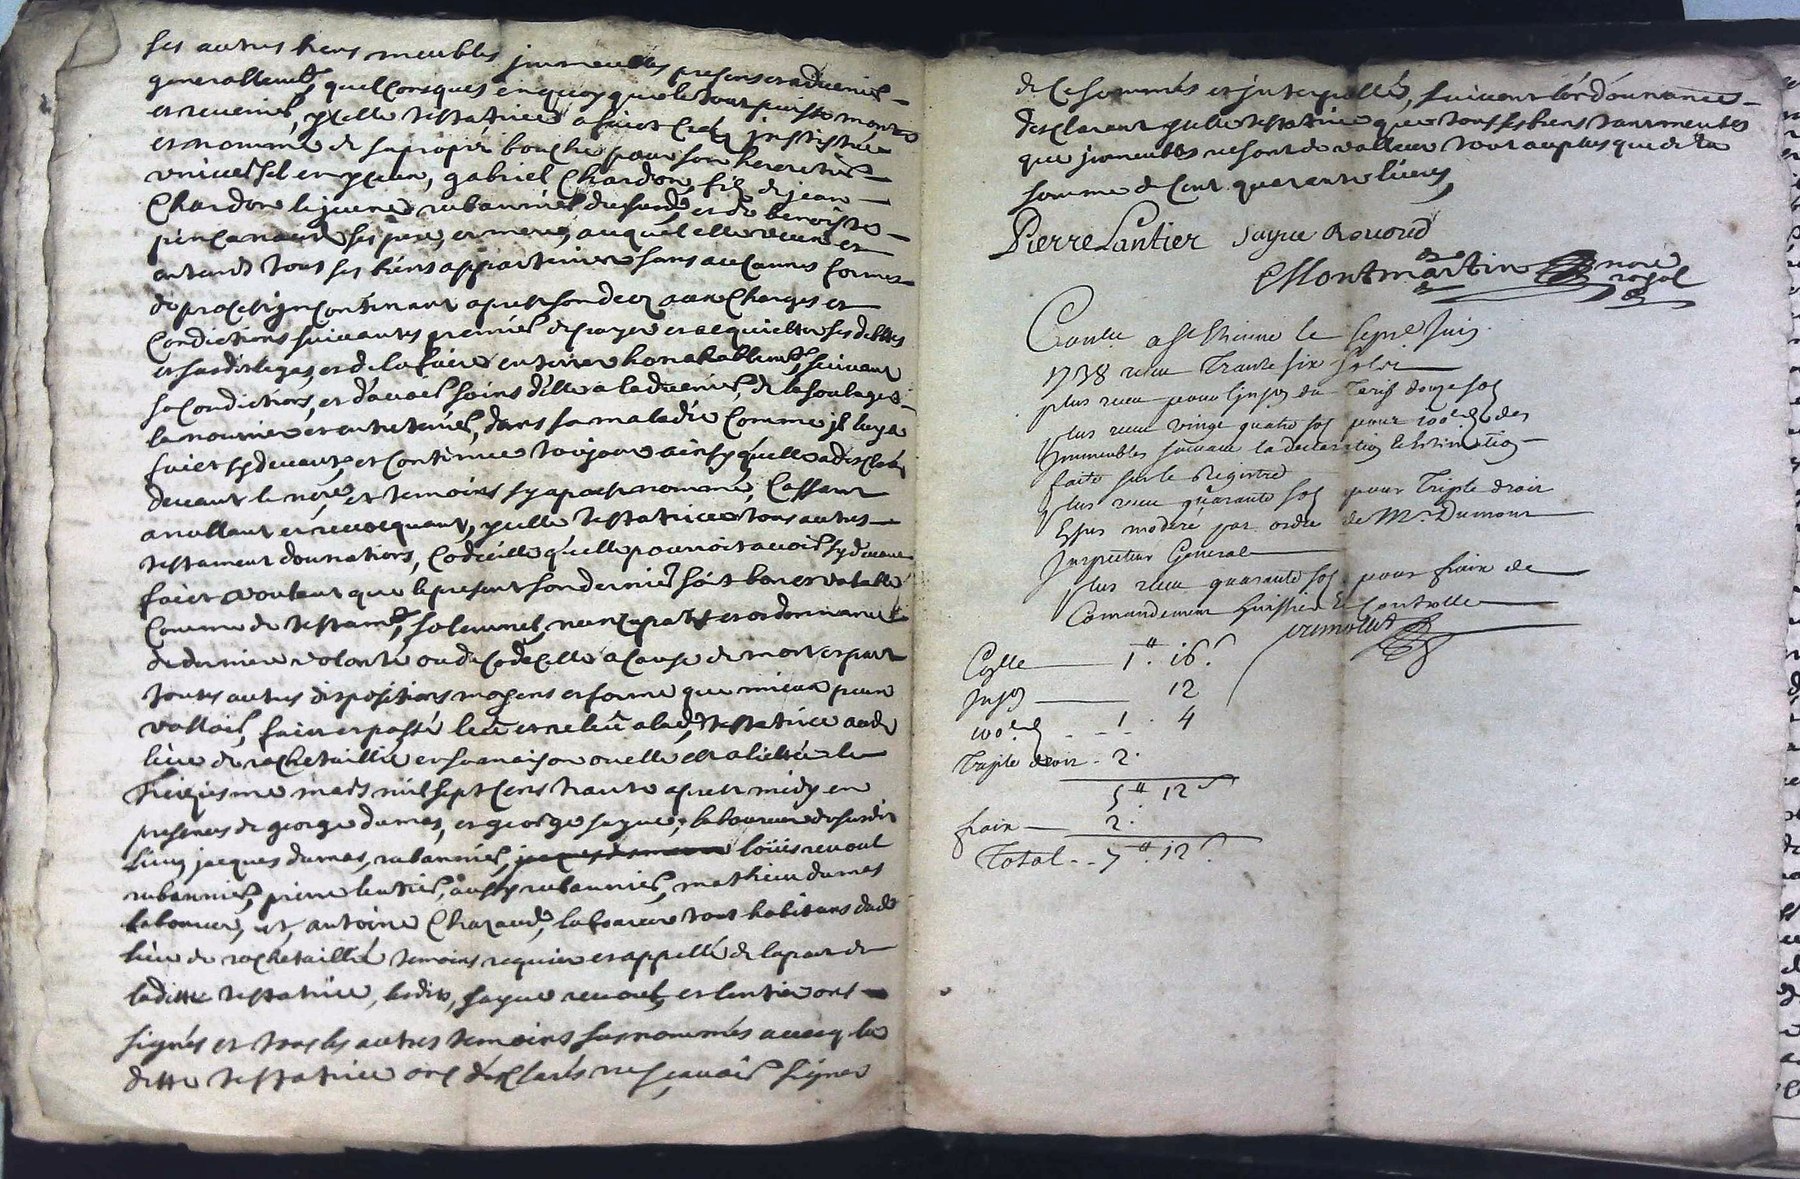 ses autres biens meubles immeubles presens et advenir
generallement quelconques en quoy que le tout puisse monter
et revenir, ycelle testatrice a faict créé institué
et nommé de sa propre bouche pour son heretier
universel en plain, gabriel Chardon, filz de jean
Chardon le jeune rubannier dudit et de benoiste
ses pere et mere, auquel elle veut et
entend tous ses biens appartenir sans aucunnes formes
de procès incontinant apres son decez aux charges et
Condictions suivantes premier de payer et acquiter ses debtes
et sesdits legats et de la faire enterrer honorablement, suivant
sa Condiction, et d'avoir soins d'elle a ladvenir, de la soulager
la nourrir et entretenir, dans sa maladie comme jl luy a
faict sydevant et continue toujour ainsy quelle a desclaré
devant le nore, et temoins sy apres nommé, Cassant
anullant et revocquant, ycelle testatrice tous autres
testament dounations, Codicille quelle pourroit avoir sydevant
faict voulant que le present son dernier soit bon et vallable
Comme de testamt, solemnel, nuncupatif et ordonnance
de derniere volonté ou de Codecille a Cause de mort et part
toutes autres dispositions moyens et forme que mieux peut
valloir, faict et passé leu et releu a lade testatrice aude
lieu de rochetaillié en sa maison ou elle est alictée le
mars mil sept cens trante apres midy en
presences de george dumas, et george sagne, laboureur dususdit
lieu, jacques dumas, rubannier, louis revout
rubannier, pierre lentier, aussy rubannier, mathieu dumas
laboureur, et, antoine Chazaud, laboureur tout habitans dude
lieu de rochetaillié temoins requier et appellé de la part de
laditte testatrice, lesdits, sagne revout, et lentier ont
signés et tous les autres temoins susnommés avecq la
ditte testatrice ont desclarés ne sçavoir signer
de ce sommés et jnterpellé, suivant l'ordounance
desclarant ycelle testatrice que tous ses biens tant meubles
que jmmeubles ne sont de valleur tout au plus que de la
somme de Cent quarante livres
Pierre Lantier Sagne Revoud
Montmartin nore
royal
Contlé a St Etienne le sept Juin
1738 receu Trante six solz
plus receu pour linson du Tarif douze sols
plus receu vingt quatre sols pour 100e d des
Immeubles suivant la declaration Estimation
faite sur le Registre
plus receu quarante sols pour Triple droit
moderé par ordre de Mr. Dumont
Inspecteur General
plus receu quarante sols pour fraix de
Comandement huissier Et Controlle
Colle 1# 16s
Inson 12
100e d 1. 4
Triple droit 2.
5# 12s
fraix 2.
Total 7# 12s